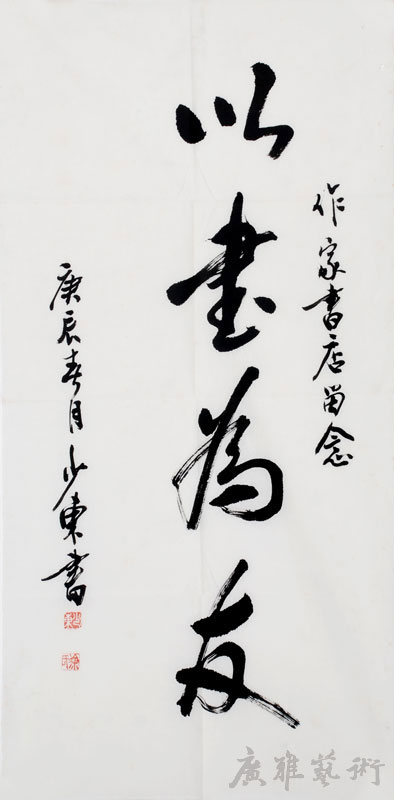 作家書店留念
以書為友
庚辰春月少東書
廣雅藝術